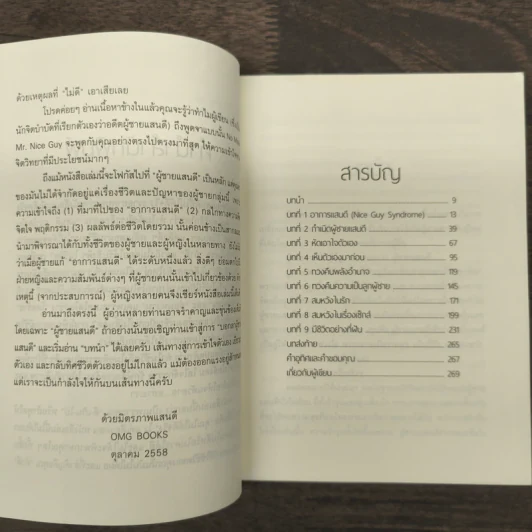 ด้วยเหตุผลที่ "ไม่ดี" เอาเสียเลย
โปรดค่อยๆ อ่านเนื้อหาข้างในแล้วคุณจะรู้ว่าทำไมผู้เขียน
นักจิตบำบัดที่เรียกตัวเองว่าอดีตผู้ชายแสนดี) ถึงพูดจาแบบนั้น
Mr. Nice Guy จะพูดกับคุณอย่างตรงไปตรงมาที่สุด
จิตวิทยาที่มีประโยชน์มากๆ
ถึงแม้หนังสือเล่มนี้จะโฟกัสไปที่ "ผู้ชายแสนดี" เป็นหลัก
ของมันไม่ได้จำกัดอยู่แค่เรื่องชีวิตและปัญหาของผู้ชายกลุ่มนี้
ความเข้าใจถึง (1) ที่มาที่ไปของ "อาการแสนดี" (2) กลไกทาง
จิตใจ พฤติกรรม (3) ผลลัพธ์ต่อชีวิตโดยรวม นั้นค่อนข้างเป็นสากล
นำมาพิจารณาได้กับทั้งชีวิตของผู้ชายและผู้หญิงในหลายทาง
ว่าเมื่อผู้ชายแก้ "อาการแสนดี" ได้ระดับหนึ่งแล้ว สิ่งดีๆ
ฝ่ายหญิงและความสัมพันธ์ต่างๆ ที่ผู้ชายคนนั้นเข้าไปเกี่ยวข้องด้วย
เหตุนี้ (จากประสบการณ์) ผู้หญิงหลายคนจึงเชียร์หนังสือเล่มนี้
อ่านมาถึงตรงนี้ ผู้อ่านหลายท่านอาจรำคาญและ
โดยเฉพาะ "ผู้ชายแสนดี" ถ้าอย่างนั้นขอเชิญท่านเข้าสู่การ
แสนดี" และเริ่มอ่าน "บทนำ" ได้เลยครับ เส้นทางสู่การเข้าใจตัวเอง
ตัวเอง และกลับทิศชีวิตตัวเองอยู่ไม่ไกลแล้ว แม้ต้องออกแรง
แต่เราจะเป็นกำลังใจให้กันบนเส้นทางนี้ครับ
ด้วยมิตรภาพแสนดี
OMG BOOKS
ตุลาคม 2558
สารบัญ
บทนำ 9
บทที่ 1 อาการแสนดี (Nice Guy Syndrome) 13
บทที่ 2 กำเนิดผู้ชายแสนดี 39
บทที่ 3 หัดเอาใจตัวเอง 67
บทที่ 4 เห็นตัวเองมาก่อน 95
บทที่ 5 ทวงคืนพลังอำนาจ 119
บทที่ 6 ทวงคืนความเป็นลูกผู้ชาย 145
บทที่ 7 สมหวังในรัก 171
บทที่ 8 สมหวังในเรื่องเซ็กส์ 199
บทที่ 9 มีชีวิตอย่างที่ฝัน 231
บทส่งท้าย 265
คำอุทิศและคำขอบคุณ 267
เกี่ยวกับผู้เขียน 269